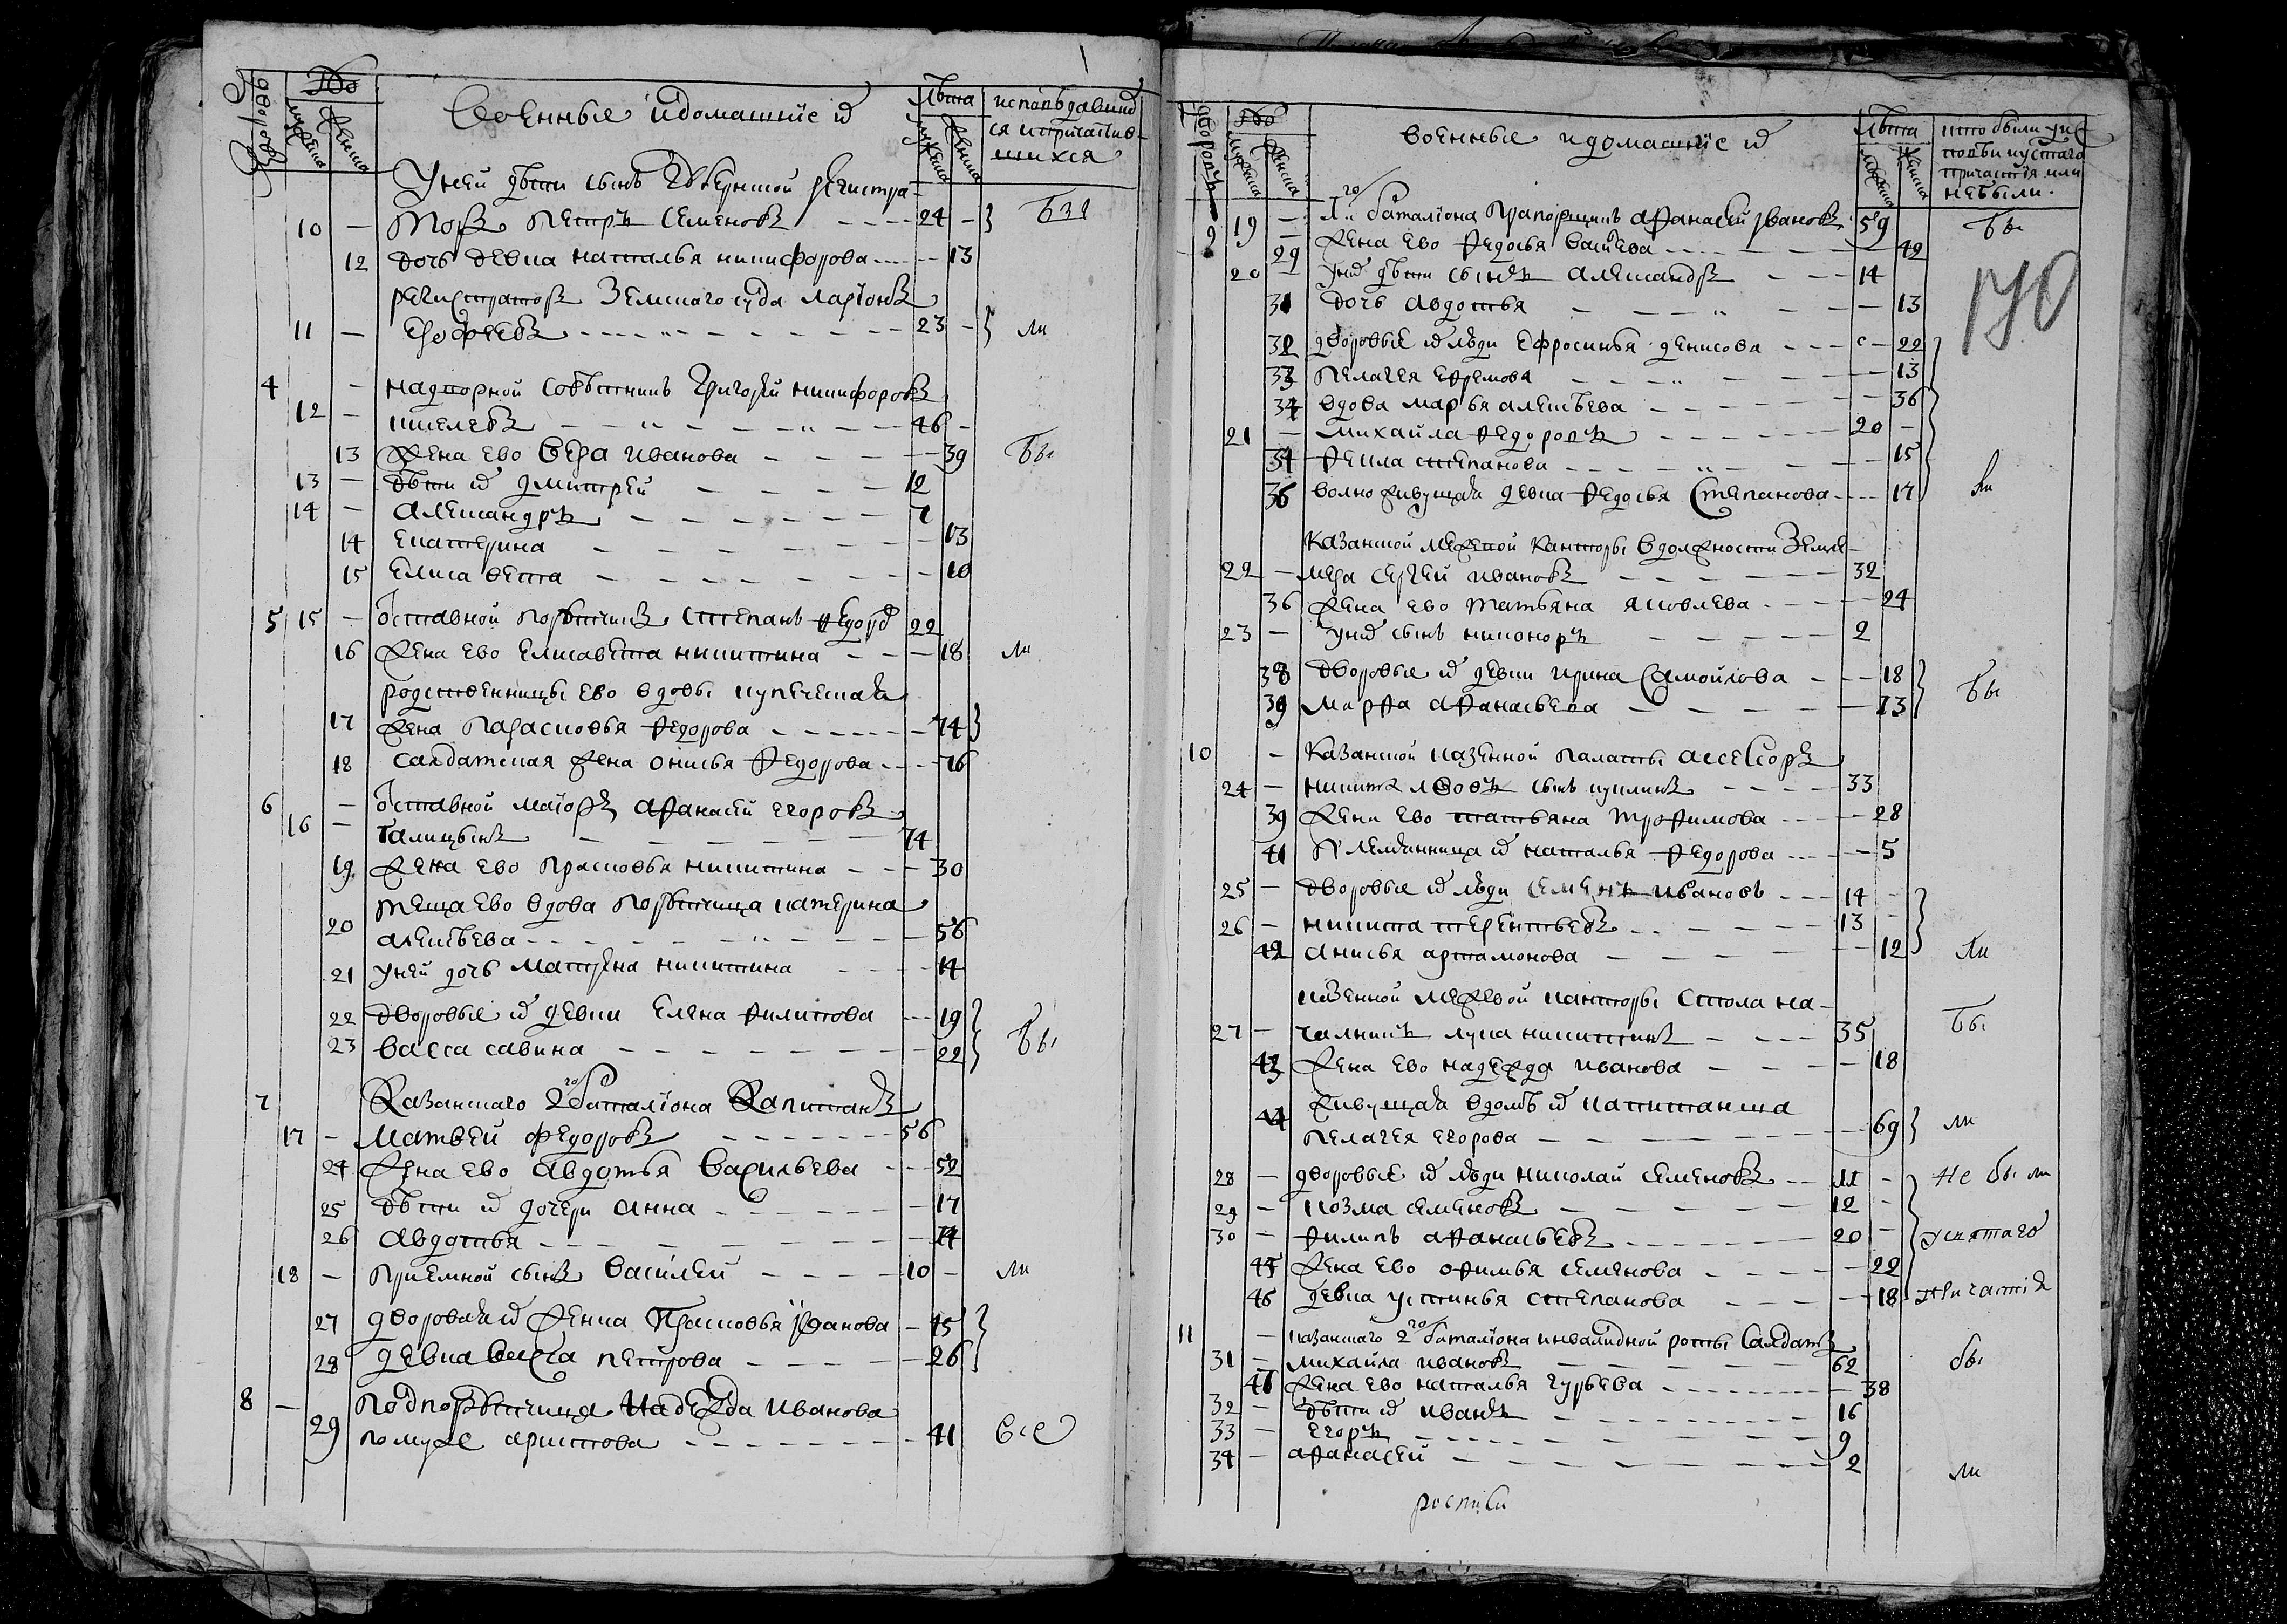 Военные и домашние их
лета
исповедавших
ся и причастив-
шихся
У ней дети сынъ губернской регистра-
10 — торъ Петръ Семеновъ 24 —
12 дочь девка Наталья Никифорова — 13
регистраторъ Земскаго суда Ларіонъ
11 — Ерофеевъ 23 — ли
4 — надворной советникъ Григорей Никифоровъ
12 — 46 —
13 жена ево Вера Иванова — 39 бы
13 — дети их Дмитрей 12
14 — Александръ 7
14 Екатерина — 13
15 Елисавета — 10
5 15 — отставной порутчикъ Степанъ Федоров 22
16 жена ево Елисавета Никитина — 18 ли
родственницы ево вдовы купеческая
17 жена Парасковья Федорова — 74
18 салдатская жена Онисья Федорова — 76
6 — отставной маіоръ Афанасей Егоровъ
16 — Галицынъ 74
19 жена ево Прасковья Никитина — 30
теща ево вдова порутчица Катерина
20 Алексеева — 56
21 у ней дочь Матрена Никитина — 14
22 дворовые их девки Елена Филипова — 19
23 Васса Савина — 22 бы
7 Казанскаго 2го баталіона Капитанъ
17 — Матвей Федоровъ 56
24 жена ево Авдотья Васильева — 52
25 дети их дочери Анна — 17
26 Авдотья — 14
18 — пріемной сынъ Василей 10 — ли
27 дворовая их женка Прасковья Иванова — 45
28 девка Петрова — 26
8 — подпорутчица Надежда Иванова
29 по муже Аристова — 41 все
Военные и домашние их
лета
кто были у ис
поведи и у святаго
причастія или
не были.
170
9 19 — баталіона прапорщикъ Афанасей Ивановъ 59 бы
29 жена ево Федосья Васильева — 42
20 — у них дети сынъ Александръ 14
31 дочь Авдотья — 13
32 дворовые их люди Ефросинья Денисова — 22
33 Пелагея Ефремова — 13
34 вдова Марья Алексеева — 36
21 — Михайла Федоровъ 20 —
34 Фекла Степанова — 15
36 вольно живущая девка Федосья Степанова — 17 ли
Казанской межевой канторы в должности Земле-
22 — мера Сергей Ивановъ 32
36 жена ево Татьяна Яковлева — 24
23 — у них сынъ Никоноръ 2
38 дворовые их девки Ирина Самойлова — 18
39 Марфа Афанасьева — 13 бы
10 — Казанской казенной палаты асесоръ
24 — Никита Львовъ сынъ 33
39 жена ево Татьяна Трофимова — 28
41 племянница их Наталья Федорова — 5
25 — дворовые их люди Семенъ Ивановъ 14 —
26 — Никита Терентьевъ 13 —
42 Анисья Артамонова — 12 ли
казенной межевой канторы стола на-
27 — чалникъ Лука Никитинъ 35 бы
43 жена ево Надежда Иванова — 18
44 живущая в доме их капитанша
Пелагея Егорова — 69 ли
28 — дворовые их люди Николай Семеновъ 11 — не были
29 — Козма Семеновъ 12 —
30 — Филипъ Афанасьевъ 20 — у святаго
45 жена ево Офимья Семенова — 22
46 девка Устинья Степанова — 18 причастія
11 — казанскаго 2го баталіона инвалидной роты Салдатъ
31 — Михайла Ивановъ 62 бы
47 жена ево Наталья Гурьева — 38
32 — дети их Иванъ 16
33 — Егоръ 9
34 — Афанасей 2 ли
росписи